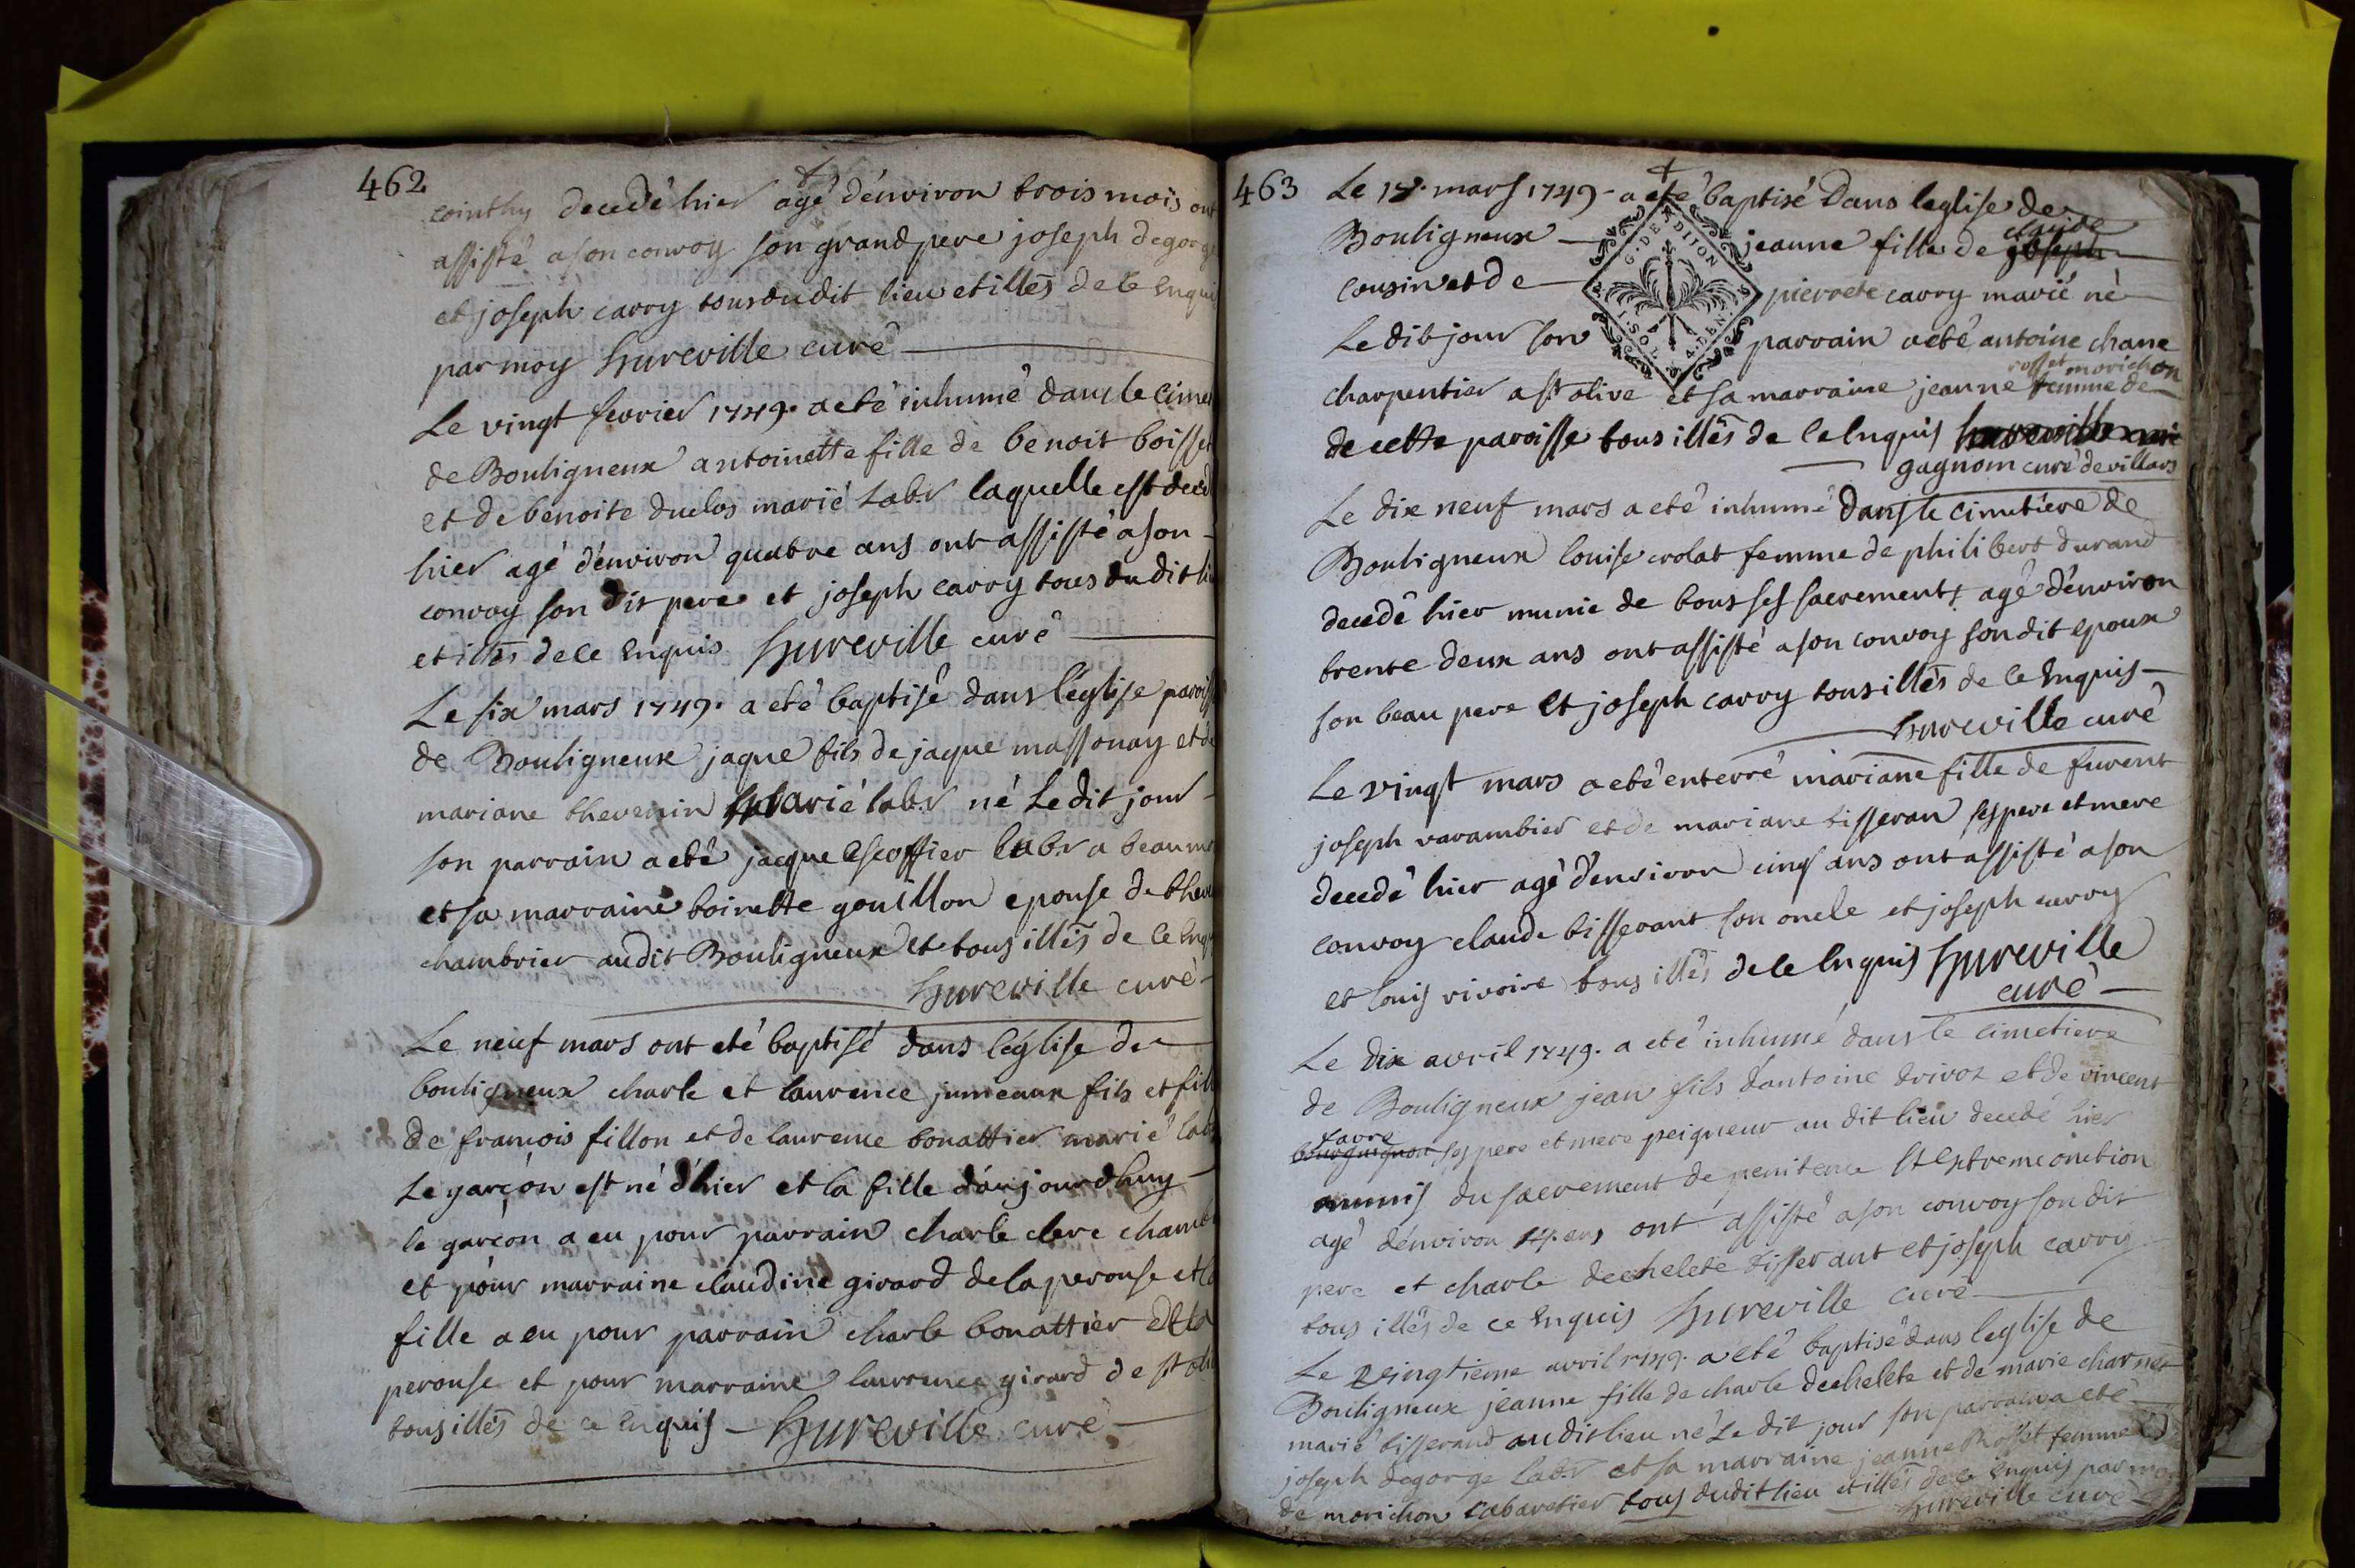 462
cointhy decedé hier agé d'environ trois mois ont
assisté a son convoy son grand pere joseph degorge
et joseph carry tous du dit lieu et illés de ce enquis
par moy hureville curé
Le vingt fevrier 1749. a eté inhumé dans le cime
de Bouligneux antoinette fille de benoit boisse
et de benoite duclos marié labr laquelle est decé
hier agé d'environ quatre ans ont assisté a son
convoy son dit pere et joseph carry tous du dit li
et illés de ce enquis hureville curé
Le six mars 1749. a eté baptisé dans l'église paroiss
de Bouligneux jaque fils de jaque massonay et de
mariane thevenin marié labr né Le dit jour
son parrain a eté jacque escoffier labr a beaumo
et sa marraine toinette gouillon epouse de theve
chambrier audit Bouligneux et tous illés de ce enq
hureville curé
Le neuf mars ont eté baptisé dans l'église de
bouligneux charle et laurence jumeaux fils et fill
de francois fillon et de laurence bonattier marié lab
Le garçon est né d'hier et la fille d'aujourdhuy
le garçon a eu pour parrain charle clerc chamb
et pour marraine claudine girard de la perouse et la
fille a eu pour parrain charle bonattier de la
perouse et pour marraine laurence girard de st oli
tous illés de ce enquis hureville curé
463
Le 17. mars 1749. a eté baptisé Dans leglise de
Bouligneux jeanne fille de joseph claude
cousin et de pierrete carry marié né
Le dit jour son parrain a eté antoine chane
G. DE DIJON
1. SOL. 4. DEN.
charpentier a st olive et sa marraine jeanne rosset femme de morichon
de cette paroisse tous illés de ce enquis hureville curé
gagnom curé de villars
Le dix neuf mars a eté inhumé dans le cimetiere de
Bouligneux louise crolat femme de philibert durand
decedé hier munie de tous ses sacrements agé d'environ
trente deux ans ont assisté a son convoy son dit epoux
son beau pere et joseph carry tous illés de ce enquis
hureville curé
Le vingt mars a eté enterré mariane fille de furent
joseph varambier et de mariane tisseran ses pere et mere
decedé hier agé d'environ cinq ans ont assisté a son
convoy claude tisserant son oncle et joseph carry
et louis rivoire tous illés de ce enquis hureville
curé
Le dix avril 1749. a eté inhumé dans le cimetiere
de Bouligneux jean fils d'antoine trivoz et de vincent
favre
bourguignon ses pere et mere peigneur au dit lieu decedé hier
munis du sacrement de penitence et extreme onction
agé d'environ 14. ans ont assisté a son convoy son dit
pere et charle dechelete tisserant et joseph carry
tous illés de ce enquis hureville curé
Le vingtieme avril 1749. a eté baptisé dans leglise de
Bouligneux jeanne fille de charle dechelete et de marie charnet
marié tisserand audit lieu né Le dit jour son parrain a eté
joseph degorge labr et sa marraine jeanne Rosset femme
de morichon cabaretier tous dudit lieu et illés de ce enquis par moy
hureville curé